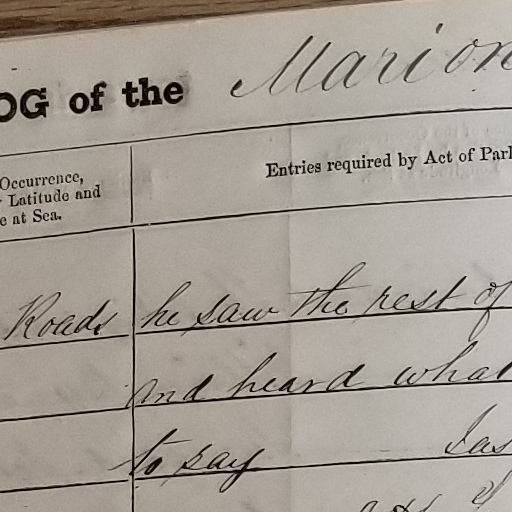 OG of the Marion
Occurrence,
Latitude and
e at Sea.
Entries required by Act of Parl
Roads he saw the rest of
and heard what
to say Jas